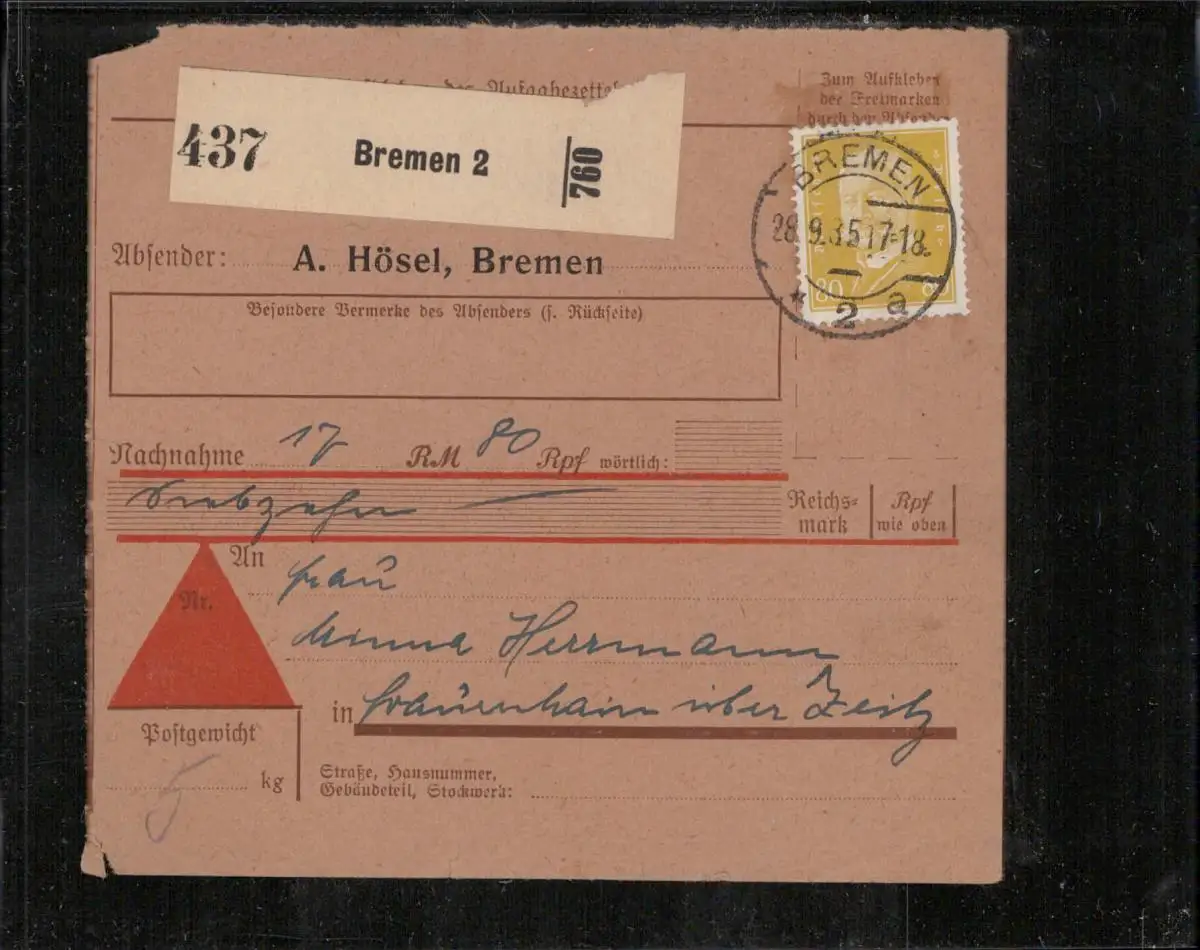 Aufgabezettel
Zum Aufkleben
der Freimarken
durch den
437 Bremen 2 760
BREMEN
28.9.35 17-18.
* 2 a
80 8
Absender: A. Hösel, Bremen
Besondere Vermerke des Absenders (s. Rückseite)
Nachnahme 17 RM 80 Rpf wörtlich:
Siebzehn
Reichs-
mark
Rpf
wie oben
An Frau
Nr.
Minna Herrmann
in Frauenhain über Zeitz
Postgewicht
5 kg
Straße, Hausnummer,
Gebäudeteil, Stockwerk: